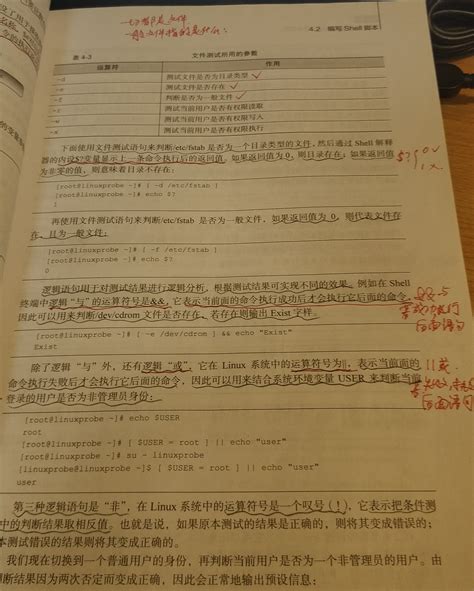 一切都是文件
一般文件指的是什么：
4.2 编写 Shell 脚本
表 4-3 文件测试所用的参数
运算符 作用
-d 测试文件是否为目录类型
-e 测试文件是否存在
-f 判断是否为一般文件
-r 测试当前用户是否有权限读取
-w 测试当前用户是否有权限写入
-x 测试当前用户是否有权限执行
下面使用文件测试语句来判断/etc/fstab 是否为一个目录类型的文件，然后通过 Shell 解释
器的内设$?变量显示上一条命令执行后的返回值。如果返回值为 0，则目录存在；如果返回值
为非零的值，则意味着目录不存在：
[root@linuxprobe ~]# [ -d /etc/fstab ]
[root@linuxprobe ~]# echo $?
1
再使用文件测试语句来判断/etc/fstab 是否为一般文件，如果返回值为 0，则代表文件存
在，且为一般文件：
[root@linuxprobe ~]# [ -f /etc/fstab ]
[root@linuxprobe ~]# echo $?
0
逻辑语句用于对测试结果进行逻辑分析，根据测试结果可实现不同的效果。例如在 Shell
终端中逻辑“与”的运算符号是&&，它表示当前面的命令执行成功后才会执行它后面的命令，
因此可以用来判断/dev/cdrom 文件是否存在，若存在则输出 Exist 字样。
[root@linuxprobe ~]# [ -e /dev/cdrom ] && echo "Exist"
Exist
除了逻辑“与”外，还有逻辑“或”，它在 Linux 系统中的运算符号为||，表示当前面的
命令执行失败后才会执行它后面的命令，因此可以用来结合系统环境变量 USER 来判断当前
登录的用户是否为非管理员身份：
[root@linuxprobe ~]# echo $USER
root
[root@linuxprobe ~]# [ $USER = root ] || echo "user"
[root@linuxprobe ~]# su - linuxprobe
[linuxprobe@linuxprobe ~]$ [ $USER = root ] || echo "user"
user
第三种逻辑语句是“非”，在 Linux 系统中的运算符号是一个叹号（!），它表示把条件测
中的判断结果取相反值。也就是说，如果原本测试的结果是正确的，则将其变成错误的；
本测试错误的结果则将其变成正确的。
我们现在切换到一个普通用户的身份，再判断当前用户是否为一个非管理员的用户。由
判断结果因为两次否定而变成正确，因此会正常地输出预设信息：